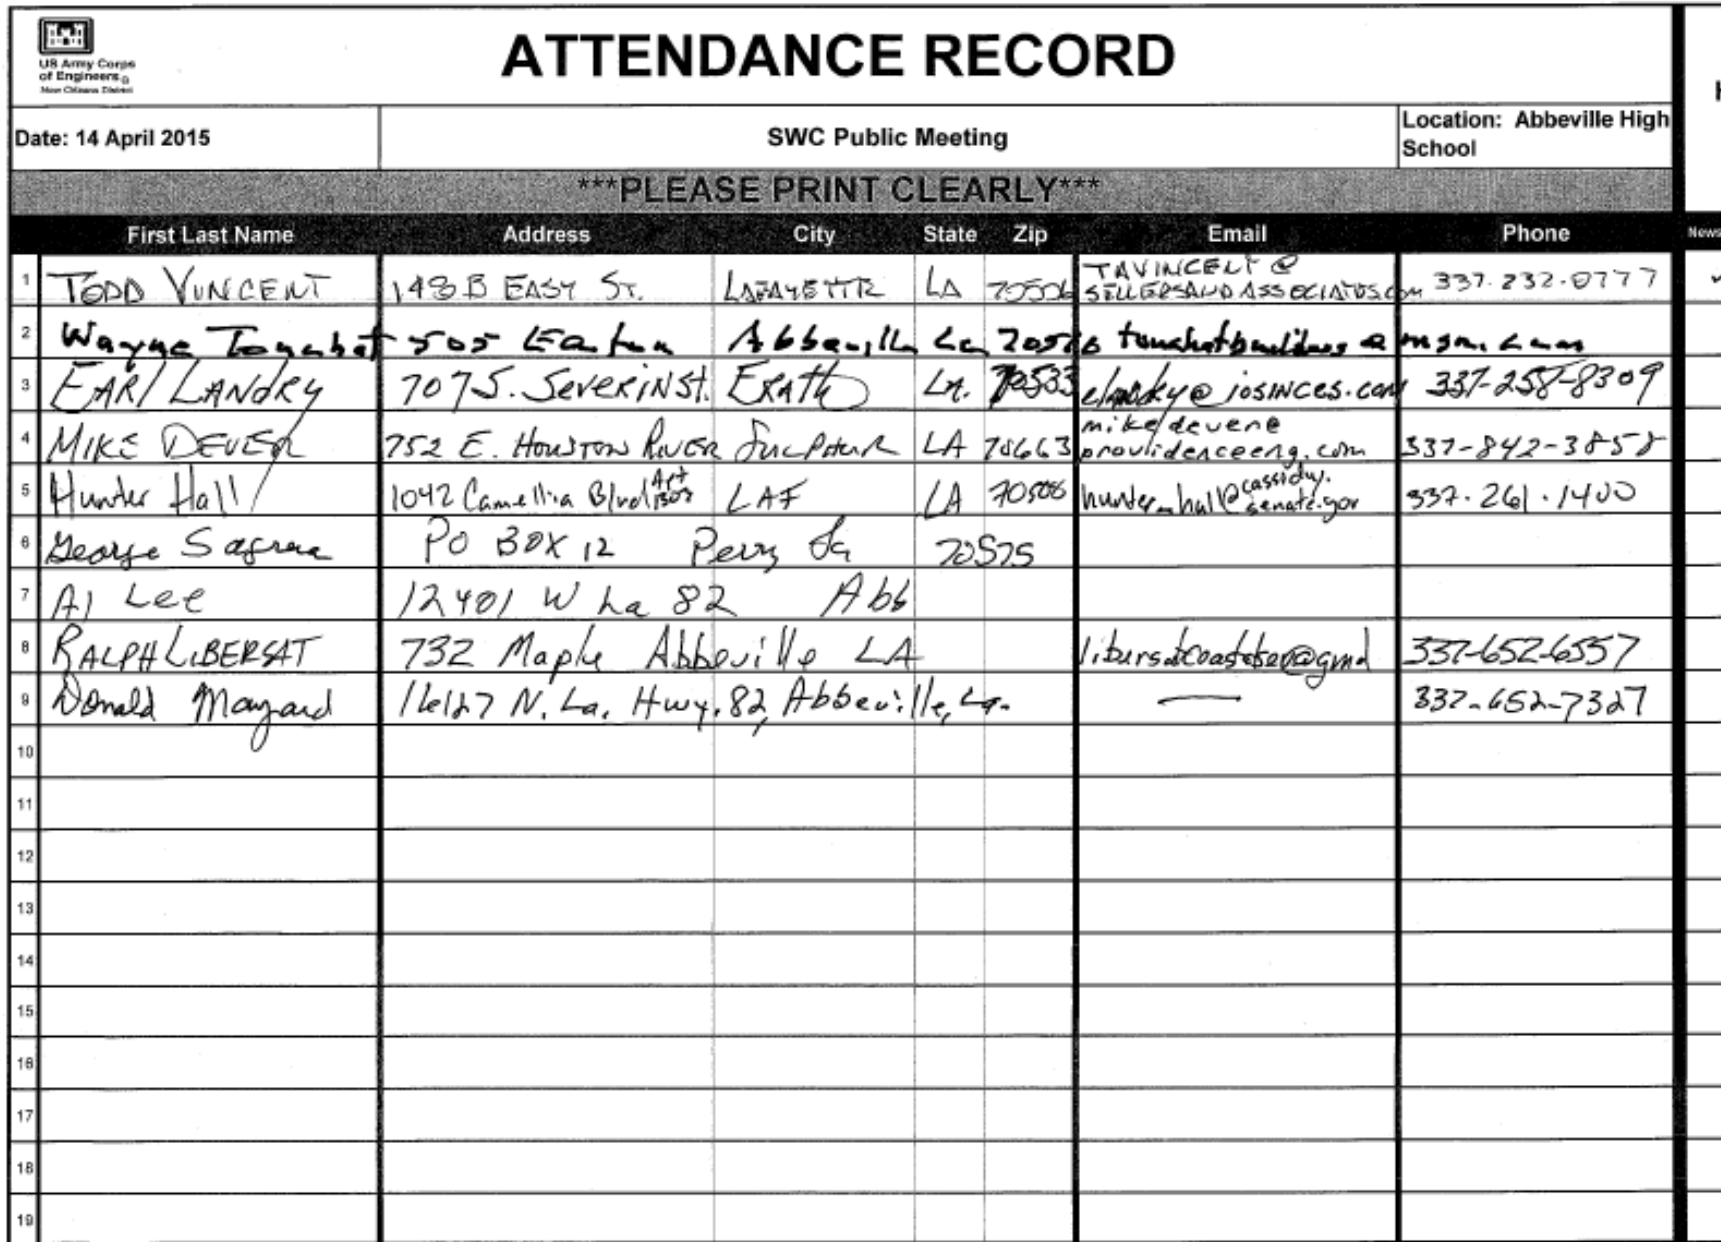 US Army Corps
of Engineers®
New Orleans District
ATTENDANCE RECORD
H
Date: 14 April 2015
SWC Public Meeting
Location: Abbeville High
School
***PLEASE PRINT CLEARLY***
First Last Name Address City State Zip Email Phone News
1 TODD VINCENT 148 B EASY ST. LAFAYETTE LA 70506 TAVINCENT@
SELLERSANDASSOCIATES.COM 337-232-0777
2 Wayne Touchet 505 Abbeville La 70510 touchetbuilders@msn.com
3 EARl LANdRy 707 S. SEVERIN St. ERATh LA. 70533 elandry@josinces.com 337-258-8309
4 MIKE DEVER 752 E. HOUSTON RIVER SULPHUR LA 70663 mikedever@
providenceeng.com 337-842-3858
5 Hunter Hall 1042 Camellia Blvd LAF LA 70508 hunter_hall@cassidy.
senate.gov 337.261.1400
6 George PO BOX 12 Perry La 70575
7 Al Lee 12401 W La 82 Abb
8 RALPH LIBERSAT 732 Maple Abbeville LA 337-652-6557
9 Donald Mayard 16127 N. La. Hwy. 82, Abbeville, La. — 337-652-7327
10
11
12
13
14
15
16
17
18
19